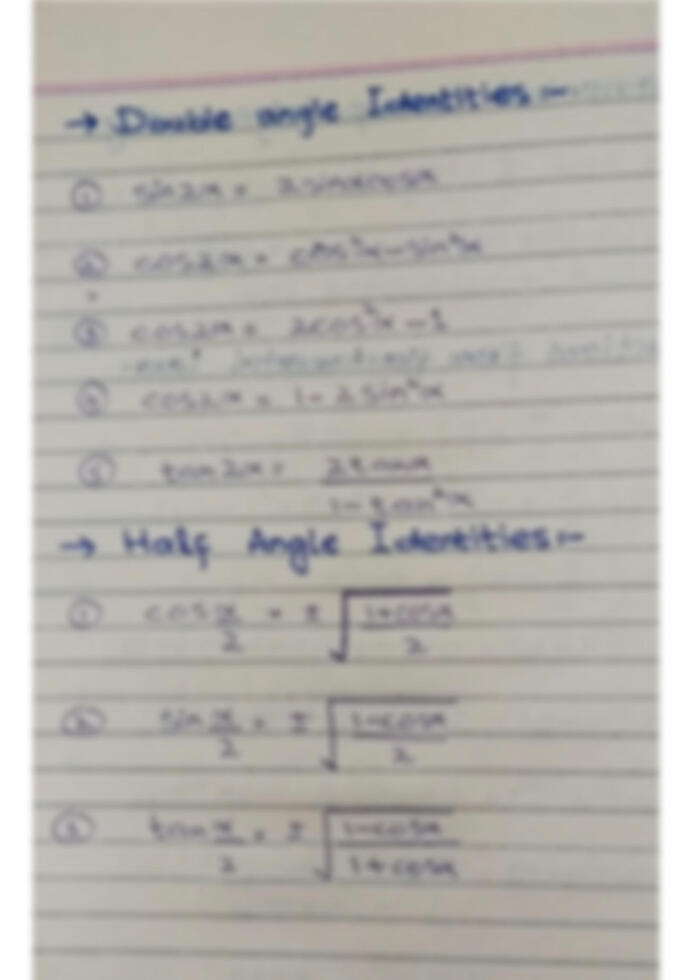 → Double angle Identities:-
① sin2x = 2sinxcosx
② cos2x = cos²x-sin²x
③ cos2x = 2cos²x-1
④ cos2x = 1-2sin²x
⑤ tan2x = 2tanx / 1-tan²x
→ Half Angle Identities:-
① cos x/2 = ± √(1+cosx / 2)
② sin x/2 = ± √(1-cosx / 2)
③ tan x/2 = ± √(1-cosx / 1+cosx)